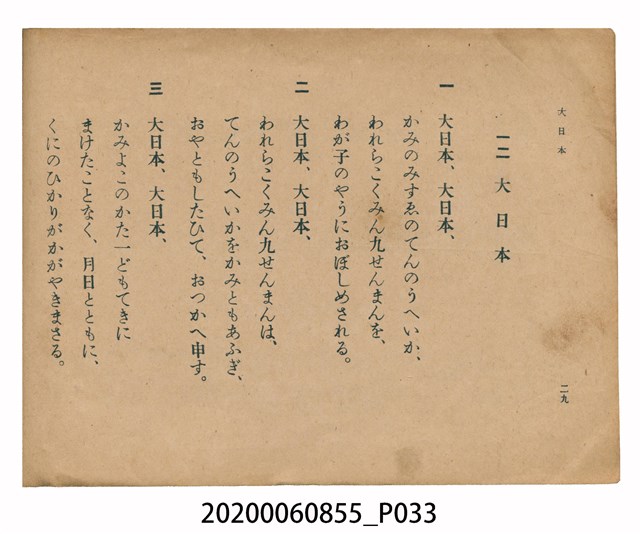 大日本
一二 大日本
一 大日本、大日本、
かみのみすゑのてんのうへいか、
われらこくみん九せんまんを、
わが子のやうにおぼしめされる。
二 大日本、大日本、
われらこくみん九せんまんは、
てんのうへいかをかみともあふぎ、
おやともしたひて、おつかへ申す。
三 大日本、大日本、
かみよこのかた一どもてきに
まけたことなく、月日とともに、
くにのひかりがかがやきまさる。
二九
20200060855_P033